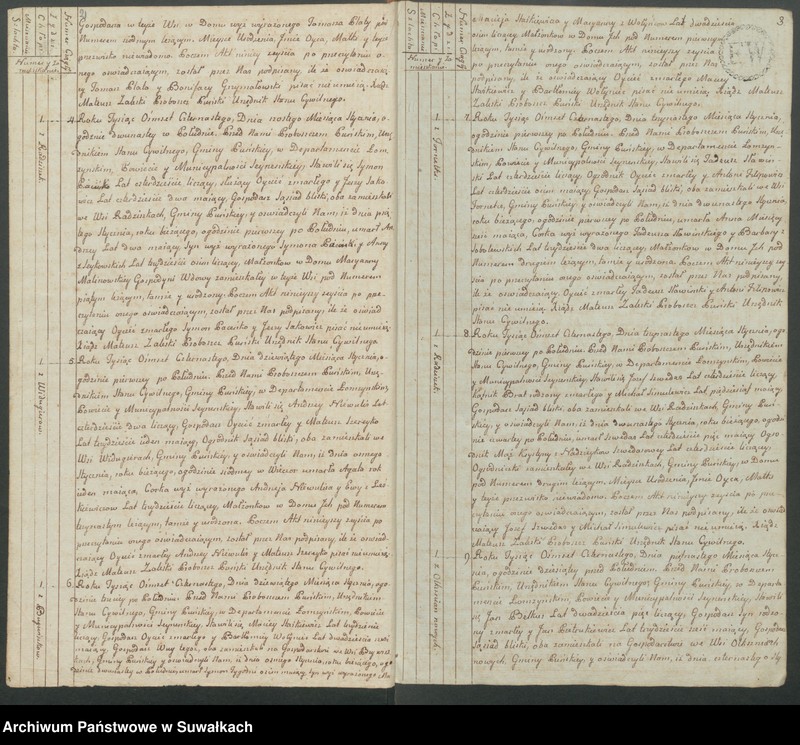 Gospodarza w tejże Wsi, w Domu wyż wyrażonego Tomasza Blaty pod
Numerem siódmym leżącym. Miejsce Urodzenia, Jmie Oyca, Matki y tejże
przezwisko niewiadome. Poczem Akt niniejszy zejścia po przeczytaniu
onego oświadczającym, został przez Nas podpisany, ile że oświadcza-
iący Tomasz Blata y Bonifacy Grynulowski pisać nie umieją. Xiądz
Mateusz Zaleski Proboszcz Puński Urzędnik Stanu Cywilnego.
4. Roku Tysiąc Ośmset Czternastego, Dnia szóstego Miesiąca Stycznia, o
godzinie dwunastey w Południe. Przed Nami Proboszczem Puńskim, Urzę-
dnikiem Stanu Cywilnego, Gminy Puńskiey, w Departamencie Łom-
żyńskim, Powiecie y Municypalności Seyneńskiey, Stawili się Symon
Lat czterdzieście liczący, Oyciec zmarłego y Jerzy Sako-
wicz Lat czterdzieście dwa maiący, Gospodarz Sąsiad bliski, oba zamieszkali
we Wsi Radziuckach, Gminy Puńskiey, y oświadczyli Nam, iż dnia pią-
tego Stycznia, roku bieżącego, o godzinie pierwszey po Południu, umarł An-
drzey Lat dwa maiący, Syn wyż wyrażonego Symona y Anny
liczącey, Małżonków w Domu Maryanny
Malinowskiey Gospodyni Wdowy zamieszkałey w tejże Wsi pod Numerem
piątym leżącym, tamże y urodzony. Poczem Akt niniejszy zejścia po prze-
czytaniu onego oświadczającym, został przez Nas podpisany, ile że oświad-
czaiący Oyciec zmarłego Symon y Jerzy Sakowicz pisać nie umieją.
Xiądz Mateusz Zaleski Proboszcz Puński Urzędnik Stanu Cywilnego.
5. Roku Tysiąc Ośmset Czternastego, Dnia dziewiątego Miesiąca Stycznia, o
godzinie pierwszey po Południu. Przed Nami Proboszczem Puńskim, Urzę-
dnikiem Stanu Cywilnego, Gminy Puńskiey, w Departamencie Łomżyńskim,
Powiecie y Municypalności Seyneńskiey, Stawili się Andrzey Niewulis Lat
czterdzieście dwa liczący, Gospodarz Oyciec zmarłey y Mateusz
Lat trzydzieście ieden maiący, Ogrodnik Sąsiad bliski, oba zamieszkali we
Wsi Widugierach, Gminy Puńskiey, y oświadczyli Nam, iż dnia osmego
Stycznia, roku bieżącego, o godzinie siódmey w Wieczor umarła Agata rok
ieden maiąca, Corka wyż wyrażonego Andrzeja Niewulisa y Ewy z
Lat trzydzieście liczącey, Małżonków w Domu Jch pod Numerem
trzynastym leżącym, tamże y urodzona. Poczem Akt niniejszy zejścia po
przeczytaniu onego oświadczającym, został przez Nas podpisany, ile że oświad-
czaiący Oyciec zmarłey Andrzey Niewulis y Mateusz pisać nie umieją.
Xiądz Mateusz Zaleski Proboszcz Puński Urzędnik Stanu Cywilnego.
6. Roku Tysiąc Ośmset Czternastego, Dnia dziewiątego Miesiąca Stycznia, o go-
dzinie trzeciey po Południu. Przed Nami Proboszczem Puńskim, Urzędnikiem
Stanu Cywilnego, Gminy Puńskiey, w Departamencie Łomżyńskim, Powiecie
y Municypalności Seyneńskiey, Stawili się Maciey Staśkiewicz Lat trzydzieście
liczący, Gospodarz Oyciec zmarłego y Bartłomiey Wołyniec Lat dwadzieścia
maiący, Gospodarz
Gminy Puńskiey y oświadczyli Nam, iż dnia osmego Stycznia, roku bieżącego, o go-
dzinie dwunastey w Południe, umarł Symon Tygodni osm maiący, Syn wyż wyrażonego
3
Staśkiewicza y Maryanny z Wołyńców Lat dwadzieścia
osm liczącey, Małżonków w Domu Jch pod Numerem pierwszym
leżącym, tamże y urodzony. Poczem Akt niniejszy zejścia
po przeczytaniu onego oświadczającym, został przez Nas
podpisany, ile że oświadczający Oyciec zmarłego Maciey
Staśkiewicz y Bartłomiey Wołyniec pisać nie umieją. Xiądz Mateusz
Zaleski Proboszcz Puński Urzędnik Stanu Cywilnego.
7. Roku Tysiąc Ośmset Czternastego, Dnia trzynastego Miesiąca Stycznia,
o godzinie pierwszey po Południu. Przed Nami Proboszczem Puńskim, Urzę-
dnikiem Stanu Cywilnego, Gminy Puńskiey, w Departamencie Łomżyń-
skim, Powiecie y Municypalności Seyneńskiey, Stawili się Tadeusz Sławiń-
ski Lat czterdzieście liczący, Ogrodnik Oyciec zmarłey y Antoni Filipowicz
Lat czterdzieście osm maiący, Gospodarz Sąsiad bliski, oba zamieszkali we Wsi
Gminy Puńskiey, y oświadczyli Nam, iż dnia dwunastego Stycznia,
roku bieżącego, o godzinie pierwszey po Południu, umarła Anna Miesięcy
maiąca, Corka wyż wyrażonego Tadeusza Sławińskiego y Barbary z
Sobolewskich Lat trzydzieście dwa liczącey, Małżonków w Domu Jch pod
Numerem drugim leżącym, tamże y urodzona. Poczem Akt niniejszy zej-
ścia po przeczytaniu onego oświadczającym, został przez Nas podpisany,
ile że oświadczający Oyciec zmarłey Tadeusz Sławiński y Antoni Filipowicz
pisać nie umieją. Xiądz Mateusz Zaleski Proboszcz Puński Urzędnik
Stanu Cywilnego.
8. Roku Tysiąc Ośmset Czternastego, Dnia trzynastego Miesiąca Stycznia, o go-
dzinie pierwszey po Południu. Przed Nami Proboszczem Puńskim, Urzędnikiem
Stanu Cywilnego, Gminy Puńskiey, w Departamencie Łomżyńskim, Powiecie
y Municypalności Seyneńskiey, Stawili się Jozef Szwedas Lat czterdzieście liczący,
Brat rodzony zmarłego y Michał Simulewicz Lat pięćdziesiąt maiący
Gospodarz Sąsiad bliski, oba zamieszkali we Wsi Radziuckach, Gminy Puń-
skiey, y oświadczyli Nam, iż dnia dwunastego Stycznia, roku bieżącego, o godzi-
nie czwartey po Południu, umarł Szwedas Lat czterdzieście pięć maiący Ogro-
dnik Mąż Krystyny z Szwedasowey Lat czterdzieście liczącey,
Ogrodniczki zamieszkałey we Wsi Radziuckach, Gminy Puńskiey, w Domu
pod Numerem drugim leżącym. Miejsce Urodzenia, Jmie Oyca, Matki
y tejże przezwisko niewiadome. Poczem Akt niniejszy zejścia po prze-
czytaniu onego oświadczającym, został przez Nas podpisany, ile że oświad-
czaiący Jozef Szwedas y Michał Simulewicz pisać nie umieją. Xiądz
Mateusz Zaleski Proboszcz Puński Urzędnik Stanu Cywilnego.
9. Roku Tysiąc Ośmset Czternastego, Dnia piętnastego Miesiąca Sty-
cznia, o godzinie dziesiątey przed Południem. Przed Nami Proboszczem
Puńskim, Urzędnikiem Stanu Cywilnego, Gminy Puńskiey, w Departa-
mencie Łomżyńskim, Powiecie y Municypalności Seyneńskiey, Stawili
się Jan Lat dwadzieścia pięć liczący, Gospodarz Syn rodzo-
ny zmarłey y Jan Lat trzydzieście sześć maiący, Gospodarz
Sąsiad bliski, oba zamieszkali na Gospodarstwie we Wsi
nowych, Gminy Puńskiey, y oświadczyli Nam, iż dnia czternastego Sty-
Archiwum Państwowe w Suwałkach